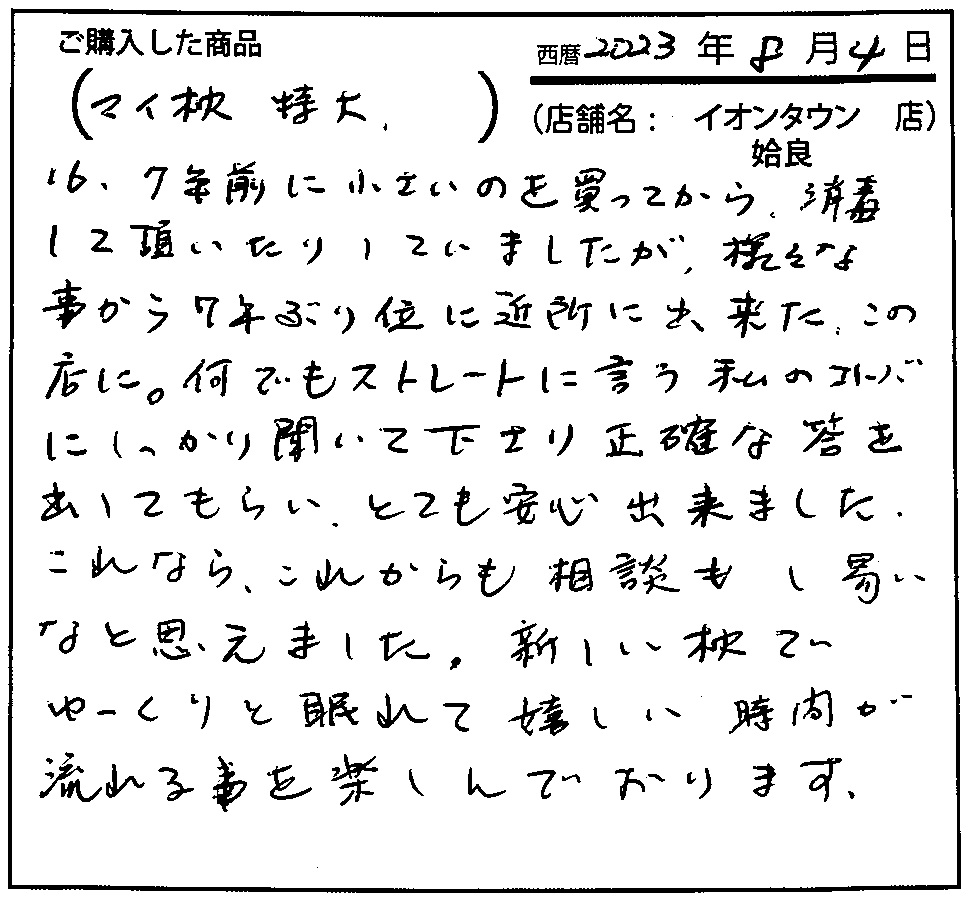 ご購入した商品
西暦2023年8月4日
(マイ枕 特大.)
(店舗名： イオンタウン 店)
姶良
16、7年前に小さいのを買ってから、消毒
して頂いたりしていましたが、様々な
事から7年ぶり位に近所に出来た、この
店に。何でもストレートに言う私のコトバ
にしっかり聞いて下さり正確な答を
出してもらい、とても安心出来ました.
これなら、これからも相談もし易い
なと思えました。新しい枕で
ゆっくりと眠れて嬉しい時間が
流れる事を楽しんでおります.